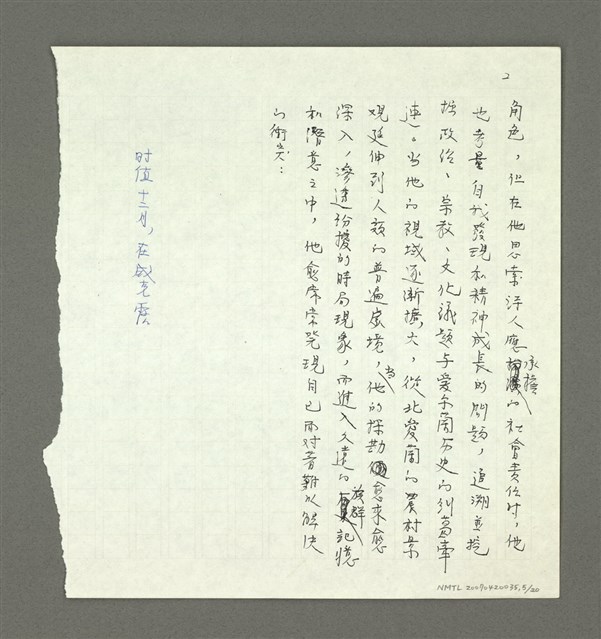 2
角色，但在他思索詩人應承擔的社會責任時，他
也考量自我發現和精神成長的問題，追溯並挖
掘政治、宗教、文化議題與愛爾蘭历史的糾葛牽
連。当他的視域逐漸擴大，從北愛蘭的農村景
观延伸到人类的普遍处境，当他的探勘愈來愈
深入，滲透紛擾的時局現象，而進入久遠的族群記憶
和潛意之中，他愈常常發現自己面对著難以解決
的衝突：
时值十二月，在威克露
NMTL 20090420035, 5/20